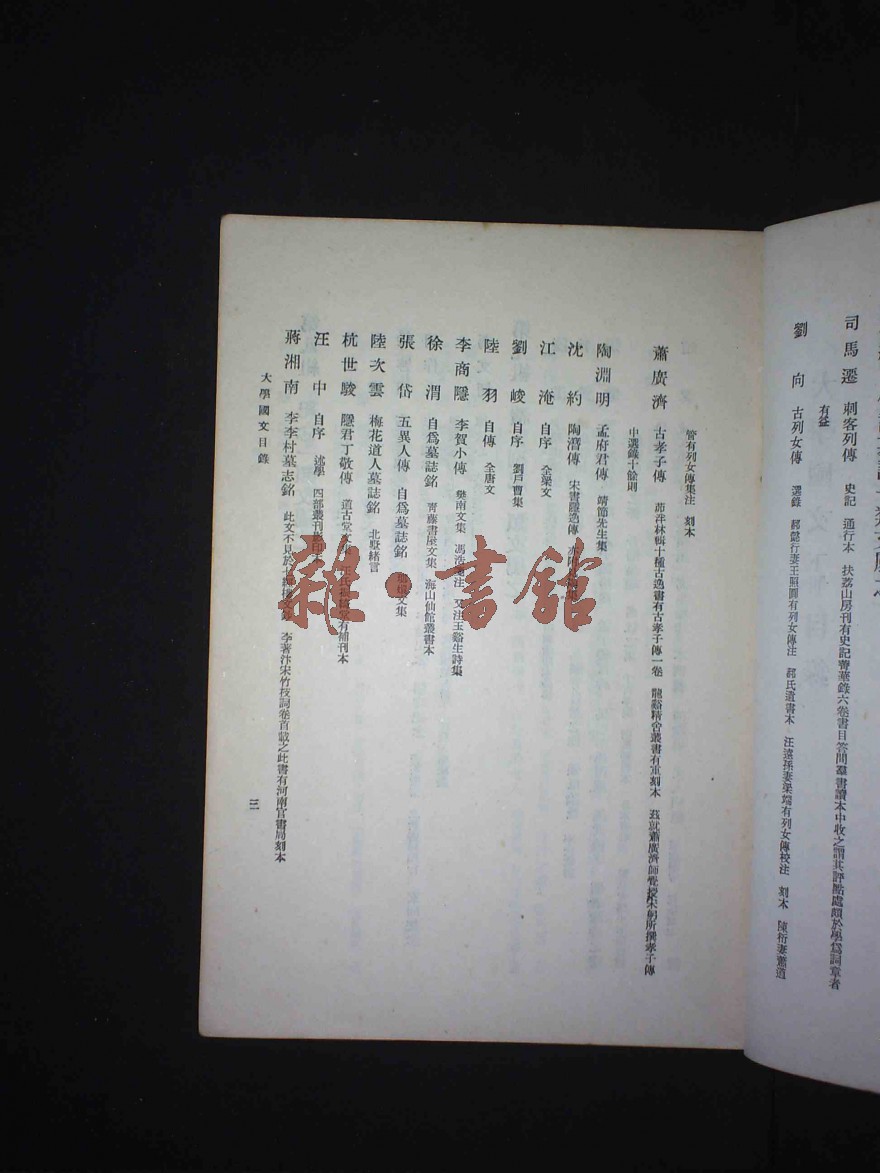 司馬遷　刺客列傳　史記　通行本　扶荔山房刊有史記菁華錄六卷書目答問羣書讀本中收之謂其評點處頗於學爲詞章者
有益
劉　向　古列女傳　選錄　郝懿行妻王照圓有列女傳注　郝氏遺書本　汪遠孫妻梁端有列女傳校注　刻本　陳衍妻蕭道
管有列女傳集注　刻本
蕭廣濟　古孝子傳　茆泮林輯十種古逸書有古孝子傳一卷　龍谿精舍叢書有重刻本　茲就蕭廣濟師覺授宋躬所撰孝子傳
中選錄十餘則
陶淵明　孟府君傳　靖節先生集
沈　約　陶潛傳　宋書隱逸傳
江　淹　自序　全梁文
劉　峻　自序　劉戶曹集
陸　羽　自傳　全唐文
李商隱　李賀小傳　樊南文集　馮浩注　又注玉谿生詩集
徐　渭　自爲墓誌銘　靑藤書屋文集　海山仙館叢書本
張　岱　五異人傳　自爲墓誌銘　文集
陸次雲　梅花道人墓誌銘　北墅緒言
杭世駿　隱君丁敬傳　道古堂文集　有補刊本
汪　中　自序　述學　四部叢刊影印本
蔣湘南　李李村墓志銘　此文不見於　李著汴宋竹枝詞卷首載之此書有河南官書局刻本
大學國文目錄
三
雜·書館